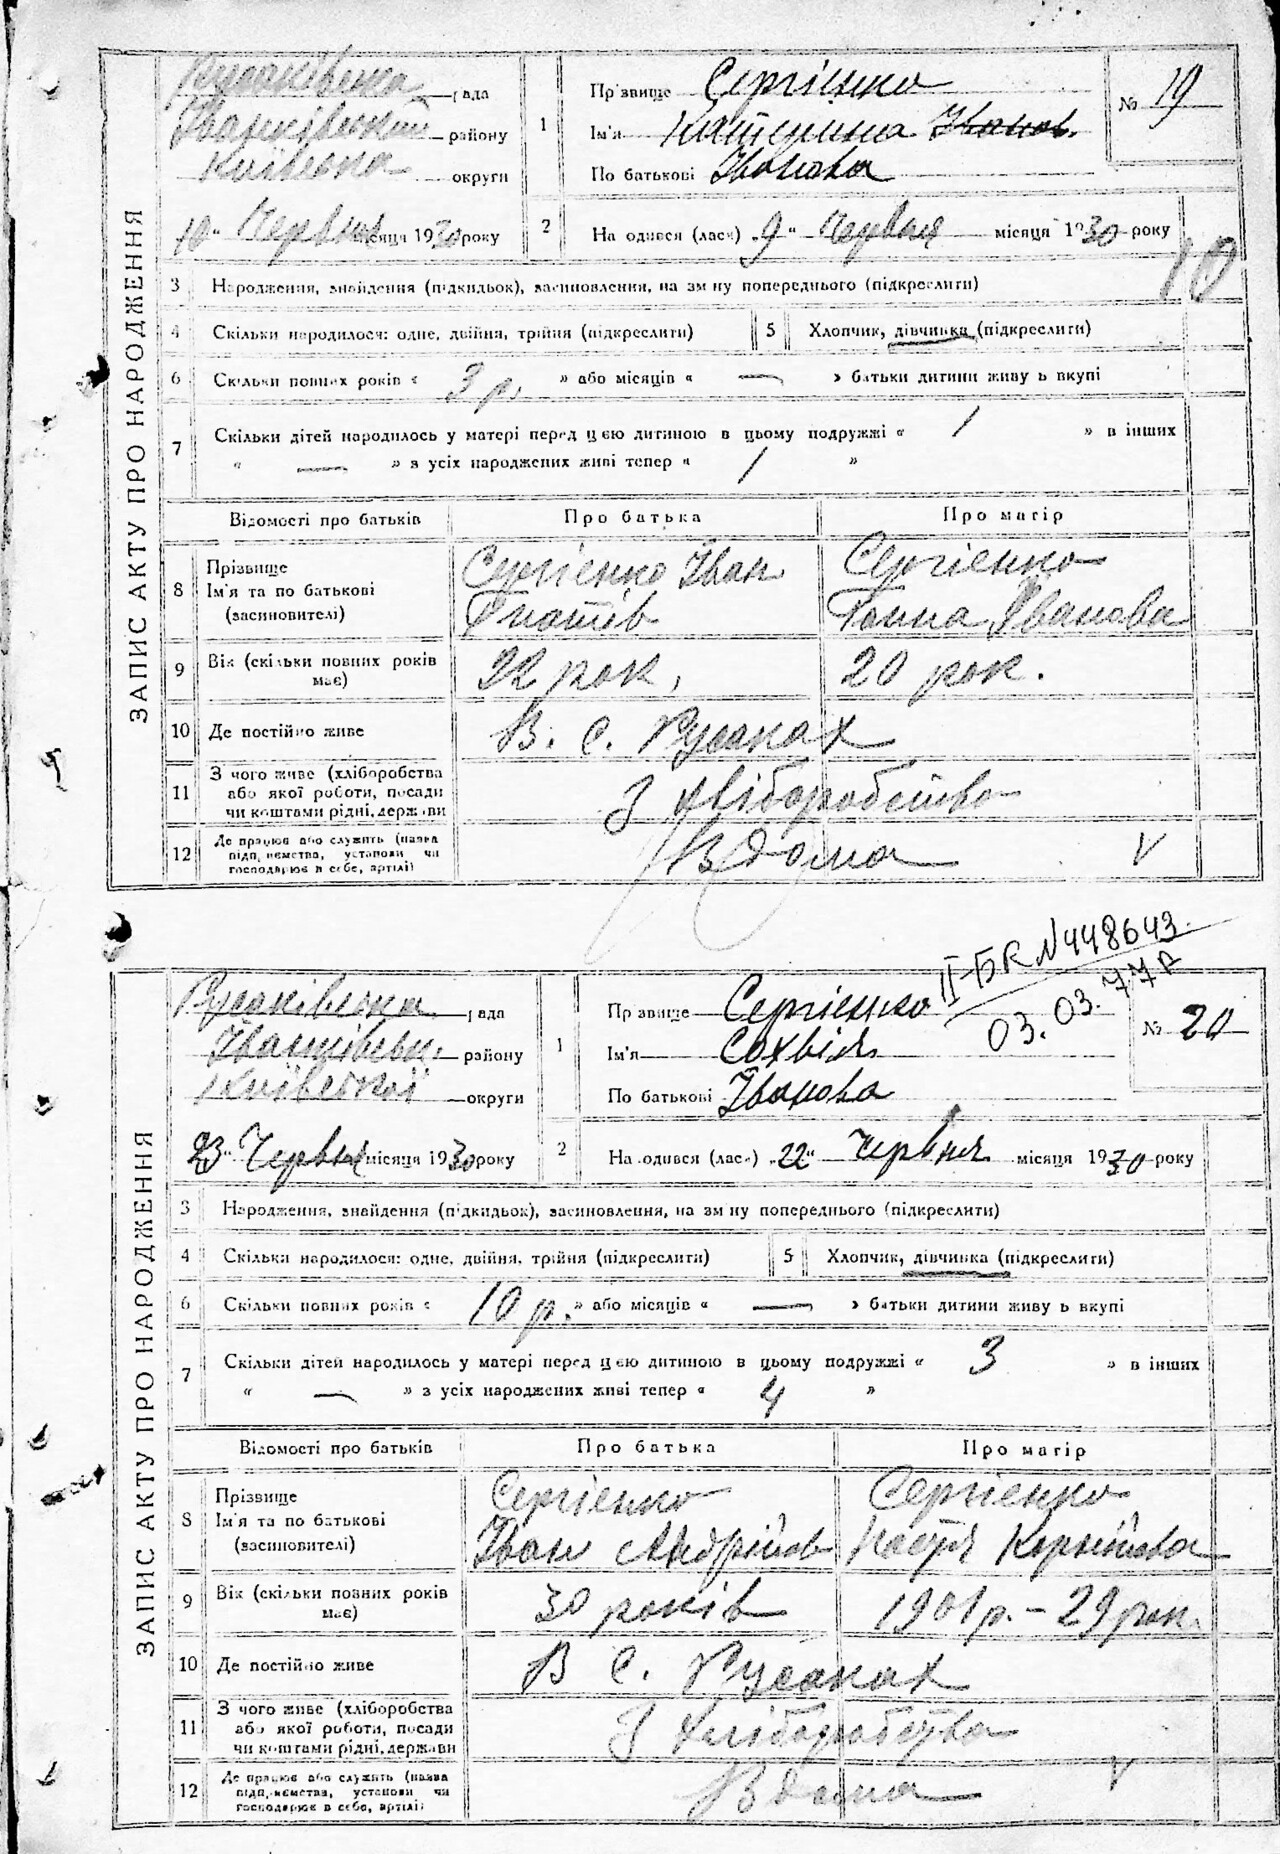 ЗАПИС АКТУ ПРО НАРОДЖЕННЯ
Русаківська рада
Іванківський району
Київська округи
10 " Червня місяця 1930 року
1
Прізвище Сергієнко
Ім'я Катерина Іванов.
По батькові Іванова
№ 19
2
На одився (лась) „9" Червня місяця 1930 року
10
3 Народження, знайдення (підкидьок), засиновлення, на зм ну попереднього (підкреслити)
4 Скільки народилося: одне, двійня, трійня (підкреслити) 5 Хлопчик, дівчинка (підкреслити)
6 Скільки повних років « 3 р. » або місяців « — » батьки дитини живу ь вкупі
7 Скільки дітей народилось у матері перед цією дитиною в цьому подружжі « 1 » в інших
« — » з усіх народжених живі тепер « 1 »
Відомості про батьків Про батька Про матір
8 Прізвище
Ім'я та по батькові
(засиновителі)
Сергієнко Іван
Гнатів
Сергієнко
Ганна Іванова
9 Вік (скільки повних років
має)
22 рок, 20 рок.
10 Де постійно живе В. с. Русаках
11 З чого живе (хліборобства
або якої роботи, посади
чи коштами рідні, держави
З хліборобства
12 Де працює або служить (назва
підприємства, установи чи
господарює в себе, артілі)
Вдома V
II-БК N 448643
03. 03. 77р
ЗАПИС АКТУ ПРО НАРОДЖЕННЯ
Русаківська рада
Іванківськ. району
Київської округи
23" Червня місяця 1930 року
1
Прізвище Сергієнко
Ім'я Сохвія
По батькові Іванова
№ 20
2
На одився (лась) „22" Червня місяця 1930 року
3 Народження, знайдення (підкидьок), засиновлення, на зм ну попереднього (підкреслити)
4 Скільки народилося: одне, двійня, трійня (підкреслити) 5 Хлопчик, дівчинка (підкреслити)
6 Скільки повних років « 10 р. » або місяців « — » батьки дитини живу ь вкупі
7 Скільки дітей народилось у матері перед цією дитиною в цьому подружжі « 3 » в інших
« — » з усіх народжених живі тепер « 4 »
Відомості про батьків Про батька Про матір
8 Прізвище
Ім'я та по батькові
(засиновителі)
Сергієнко
Іван Андрійов
Сергієнко
Настя Корнійова
9 Вік (скільки повних років
має)
30 років 1901 р. – 29 рок.
10 Де постійно живе В с. Русаках
11 З чого живе (хліборобства
або якої роботи, посади
чи коштами рідні, держави
З хліборобства
12 Де працює або служить (назва
підприємства, установи чи
господарює в себе, артілі)
Вдома V